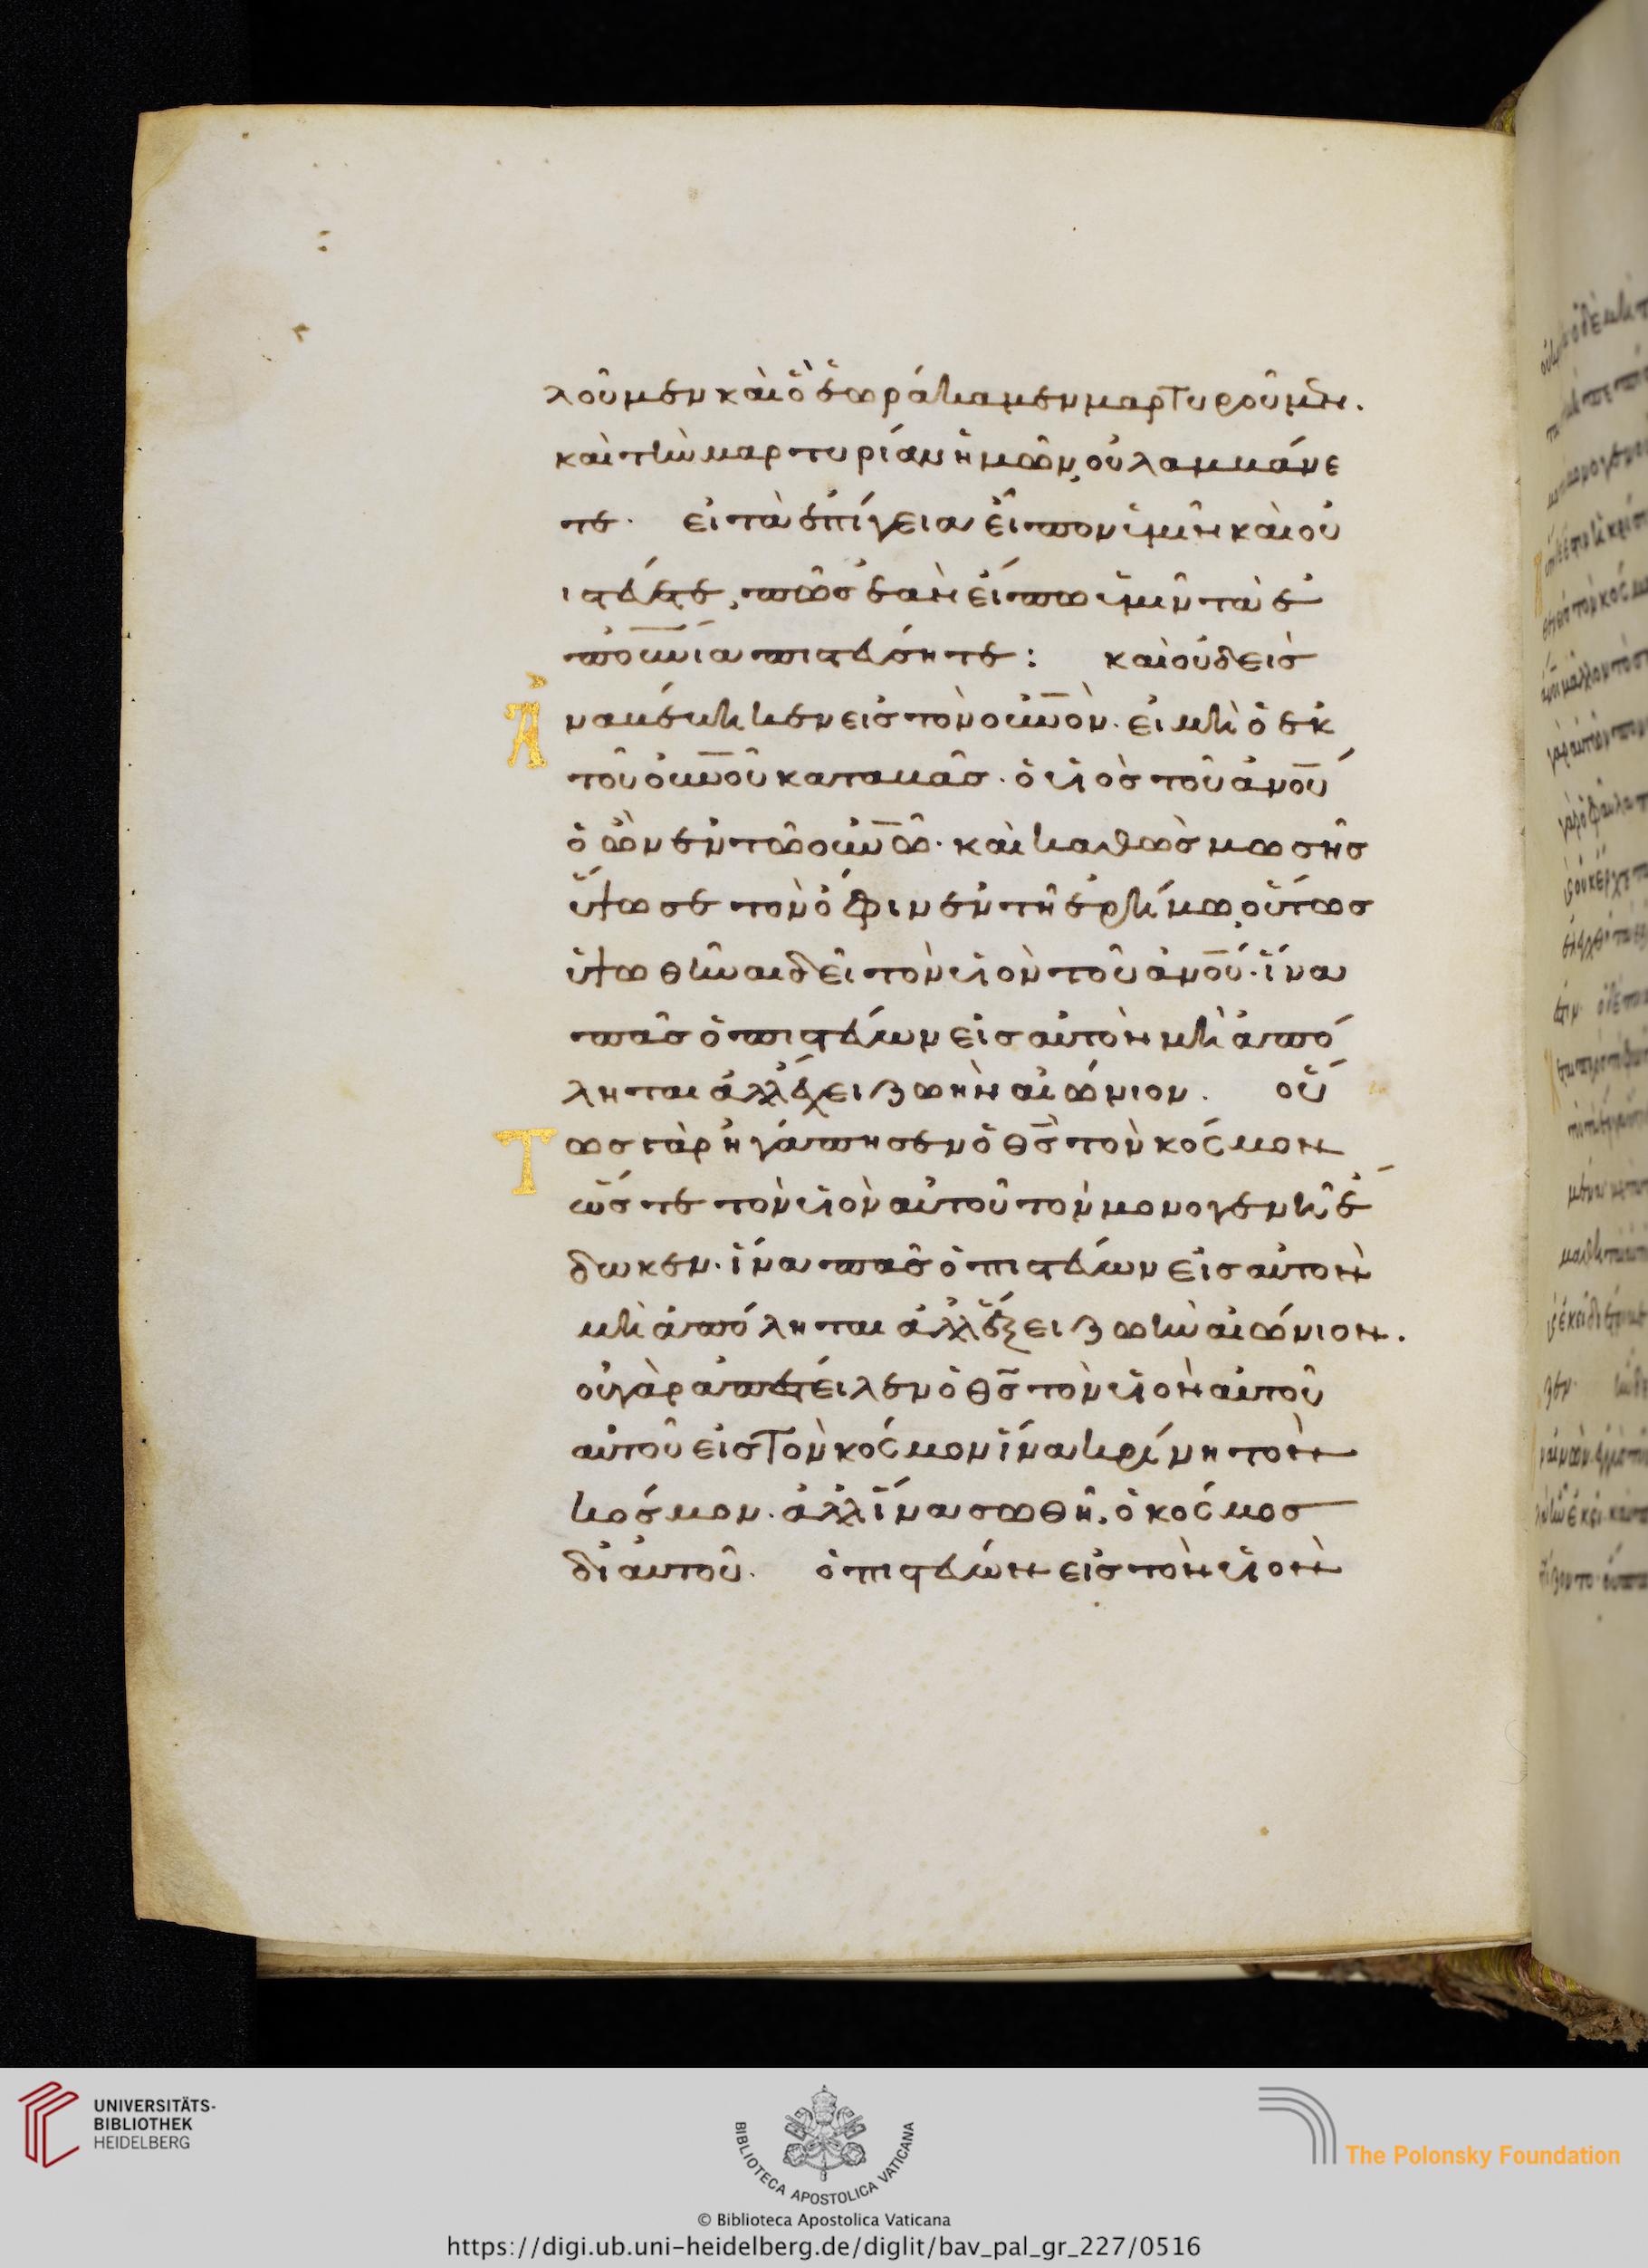 λοῦμεν καὶ ὃ ἑωράκαμεν μαρτυροῦμεν.
καὶ τὴν μαρτυρίαν ἡμῶν, οὐ λαμβάνε
τε. εἰ τὰ ἐπίγεια εἶπον ὑμῖν καὶ οὐ
πιστεύετε, πῶς ἐὰν εἴπω ὑμῖν τὰ ἐ
πουνία πιστεύσητε: καὶ οὐδεὶς
Ἀναβέβηκεν εἰς τὸν οὐνὸν. εἰ μὴ ὁ ἐκ
τοῦ οὐνοῦ καταβὰς. ὁ υἱὸς τοῦ ἀνου
ὁ ὢν ἐν τῶ οὐνῶ. καὶ καθὼς μωσῆς
ὕψωσε τὸν ὄφιν ἐν τῆ ἐρήμω, οὕτως
ὑψωθῆναι δεῖ τὸν υἱὸν τοῦ ἀνου. ἵνα
πᾶς ὁ πιστεύων εἰς αὐτὸν μὴ ἀπό
ληται ἀλλ' ἔχει ζωὴν αἰώνιον. οὕ
Τως γὰρ ἠγάπησεν ὁ θς τὸν κόσμον
ὥστε τὸν υἱὸν αὐτοῦ τὸν μονογενῆ ἔ
δωκεν. ἵνα πᾶς ὁ πιστεύων εἰς αὐτὸν
μὴ ἀπόληται ἀλλ' ἕξει ζωὴν αἰώνιον.
οὐ γὰρ ἀπέστειλεν ὁ θς τὸν υἱὸν αὐτοῦ
αὐτοῦ εἰς τὸν κόσμον ἵνα κρίνη τὸν
κόσμον. ἀλλ' ἵνα σωθῆ, ὁ κόσμος
δι' αὐτοῦ. ὁ πιστεύων εἰς τὸν υἱὸν
UNIVERSITÄTS-
BIBLIOTHEK
HEIDELBERG
BIBLIOTECA APOSTOLICA VATICANA
The Polonsky Foundation
© Biblioteca Apostolica Vaticana
https://digi.ub.uni-heidelberg.de/diglit/bav_pal_gr_227/0516